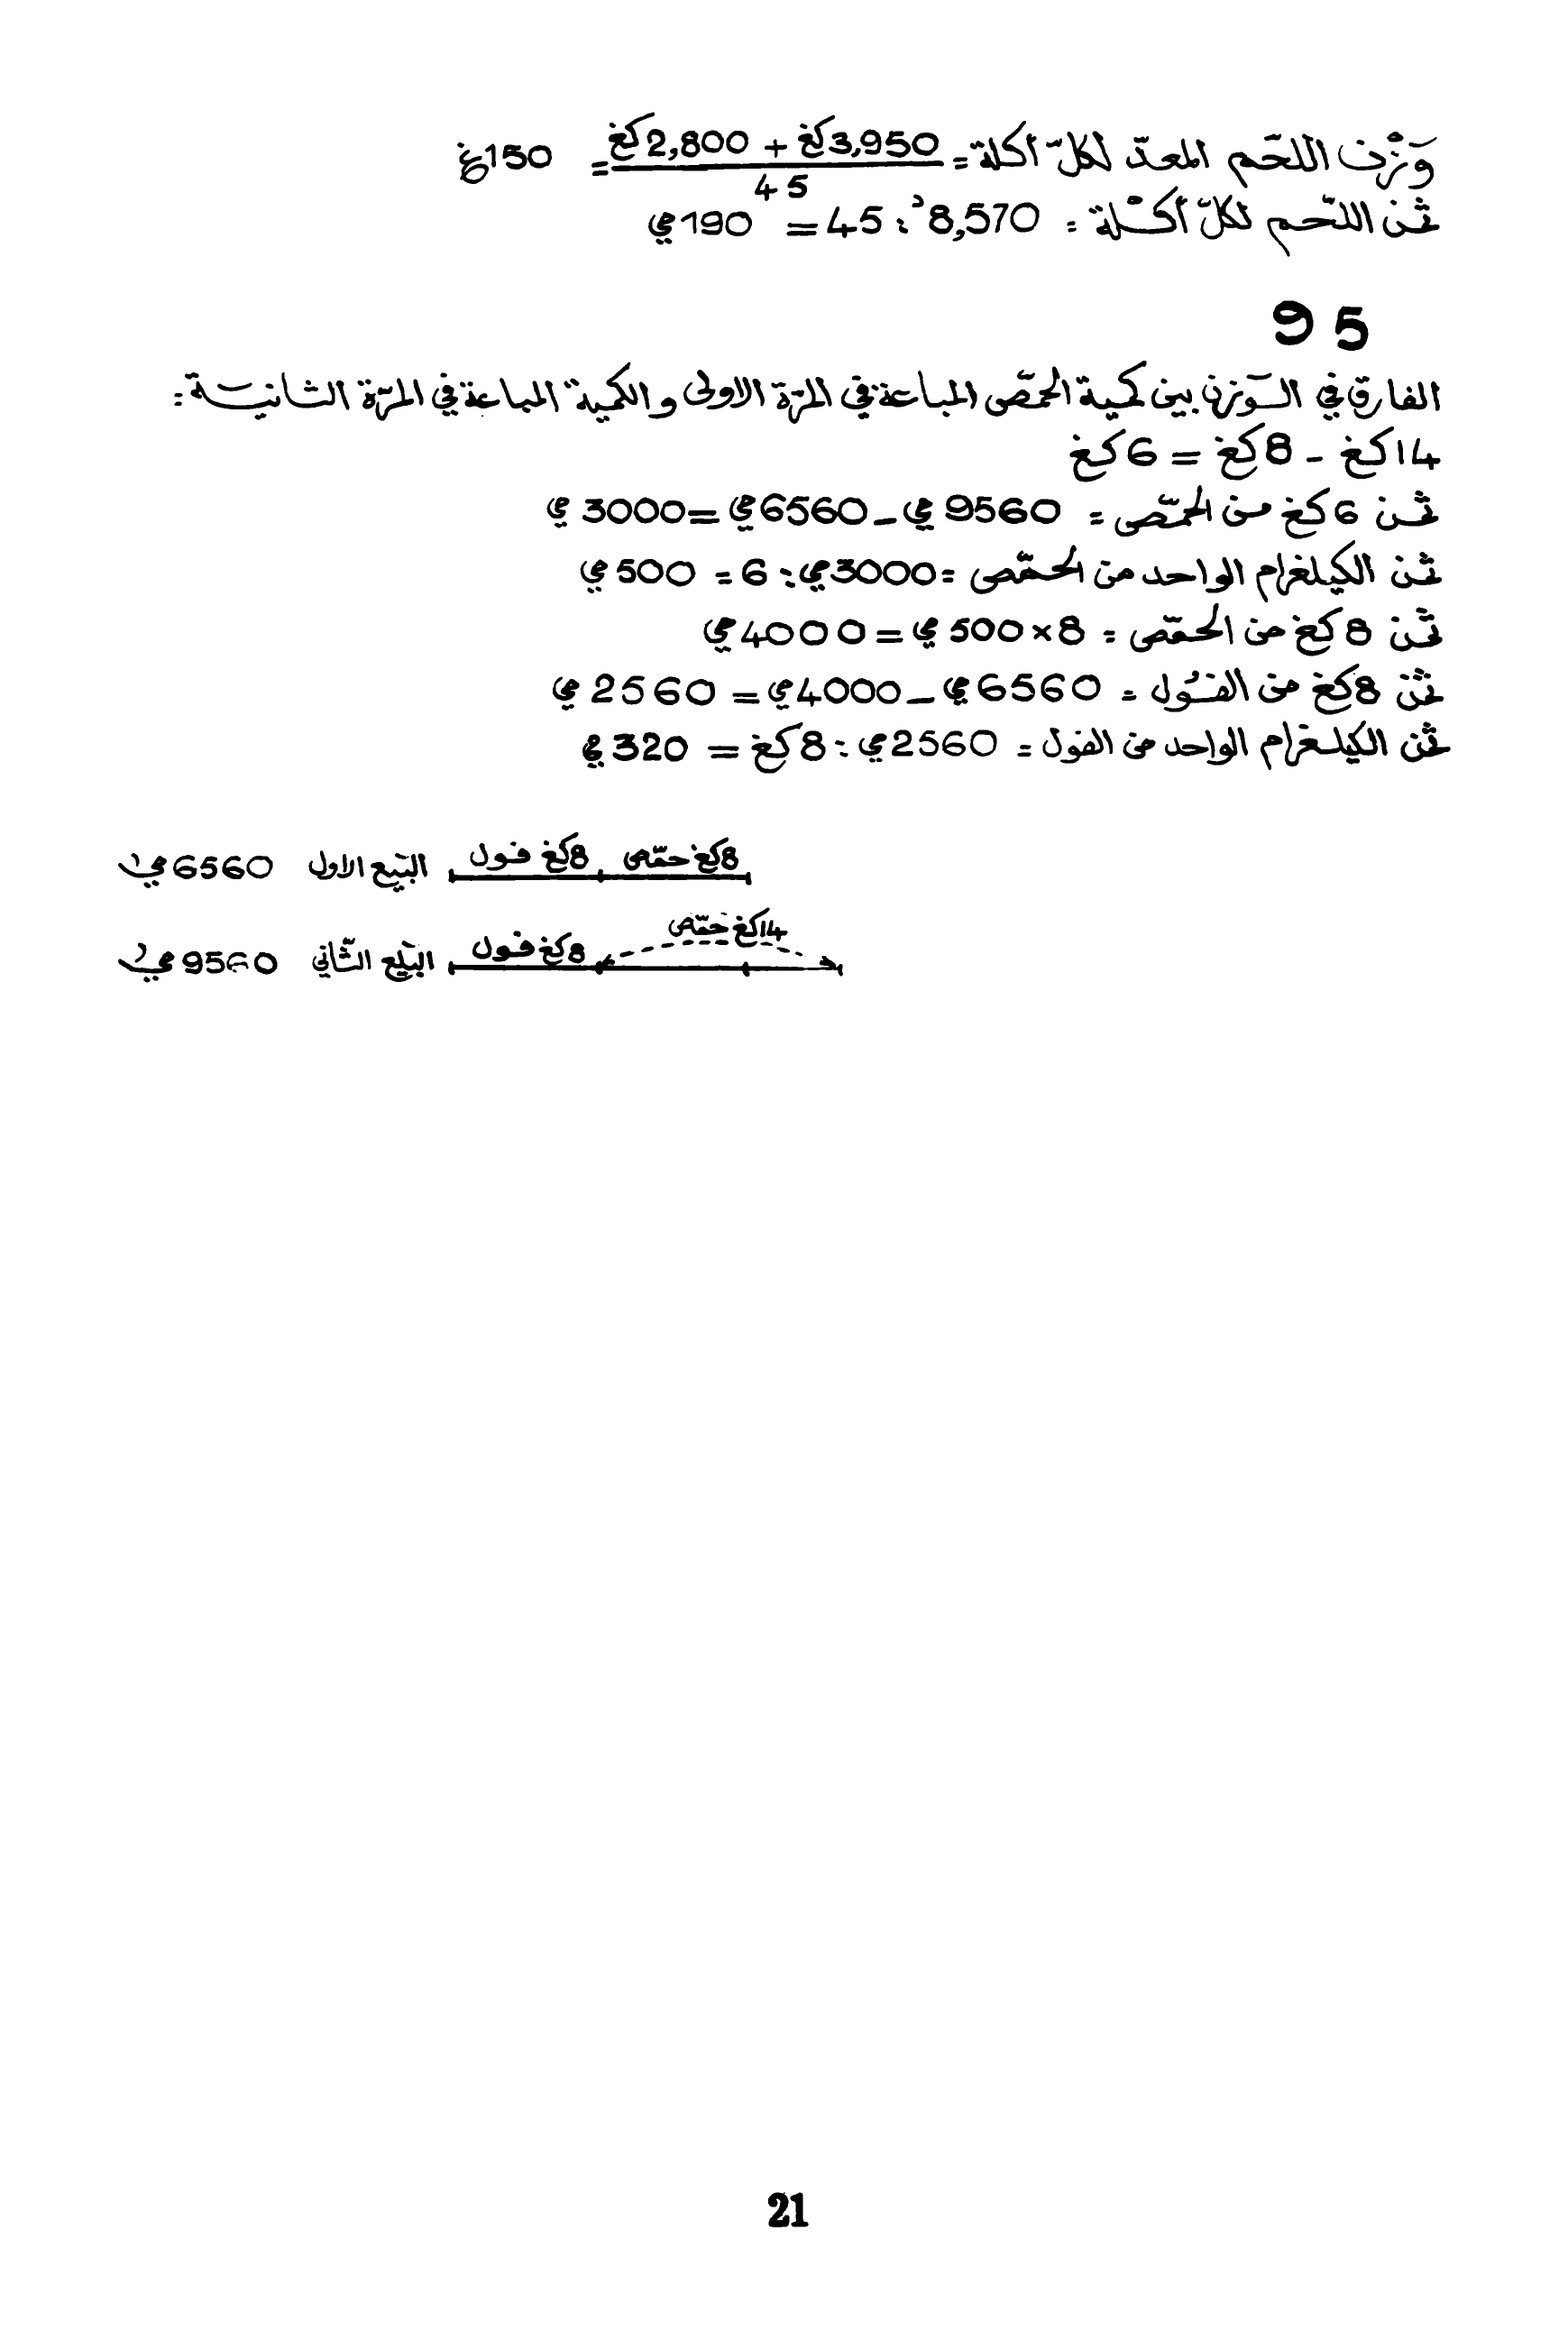 وَزْن اللحّم المعدّ لكلّ أكلة = 3,950كغ + 2,800كغ = 150غ
45
ثمن اللحّم لكلّ أكْلة = 8,570د : 45 = 190مي
95
الفارق في الوَزن بين كمية الحمّص المباعة في المرّة الاولى والكمية المباعة في المرّة الثانية :
14كغ - 8كغ = 6كغ
ثمن 6كغ من الحمّص = 9560مي - 6560مي = 3000مي
ثمن الكيلغرام الواحد من الحمّص = 3000مي : 6 = 500مي
ثمن 8كغ من الحمّص = 500×8مي = 4000مي
ثمن 8كغ من الفُول = 6560مي - 4000مي = 2560مي
ثمن الكيلغرام الواحد من الفول = 2560مي : 8كغ = 320مي
8كغ حمّص 8كغ فول البَيع الاول 6560مي
14كغ حمّص
8كغ فول البَيع الثّاني 9560مي
21